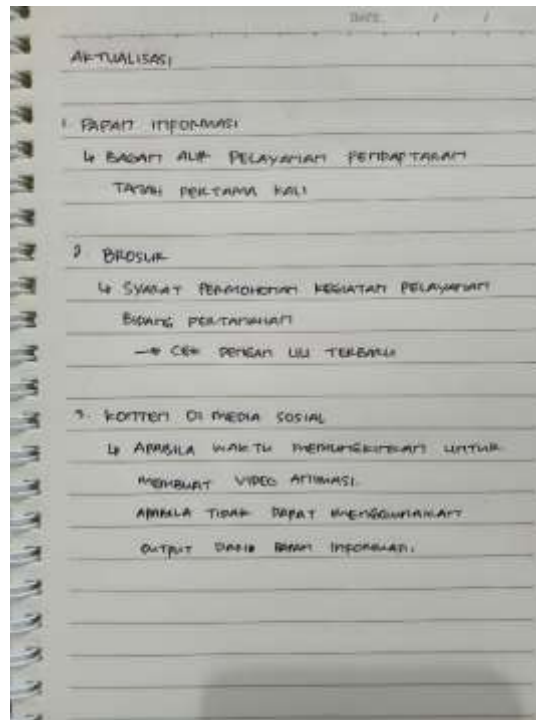 DATE / /
AKTUALISASI
1 PAPAN INFORMASI
↳ BAGAN ALUR PELAYANAN PENDAFTARAN
TANAH PERTAMA KALI
2 BROSUR
↳ SYARAT PERMOHONAN KEGIATAN PELAYANAN
BIDANG PERTANAHAN
→ CEK DENGAN UU TERBARU
3. KONTEN DI MEDIA SOSIAL
↳ APABILA WAKTU MEMUNGKINKAN UNTUK
MEMBUAT VIDEO ANIMASI.
APABILA TIDAK DAPAT MENGGUNAKAN
OUTPUT DARI PAPAN INFORMASI.